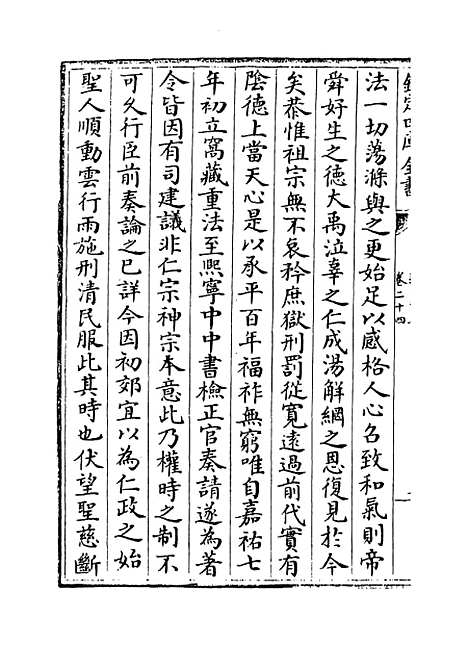 欽定四庫全書
卷二十四
法一切蕩滌與之更始足以感格人心召致和氣則帝
舜好生之德大禹泣辜之仁成湯解網之恩復見於今
矣恭惟祖宗無不哀矜庶獄刑罰從寛遠過前代實有
陰德上當天心是以承平百年福祚無窮唯自嘉祐七
年初立窩藏重法至熙寧中中書檢正官奏請遂為著
令皆因有司建議非仁宗神宗本意此乃權時之制不
可久行臣前奏論之已詳今因初郊宜以為仁政之始
聖人順動雲行雨施刑清民服此其時也伏望聖慈斷